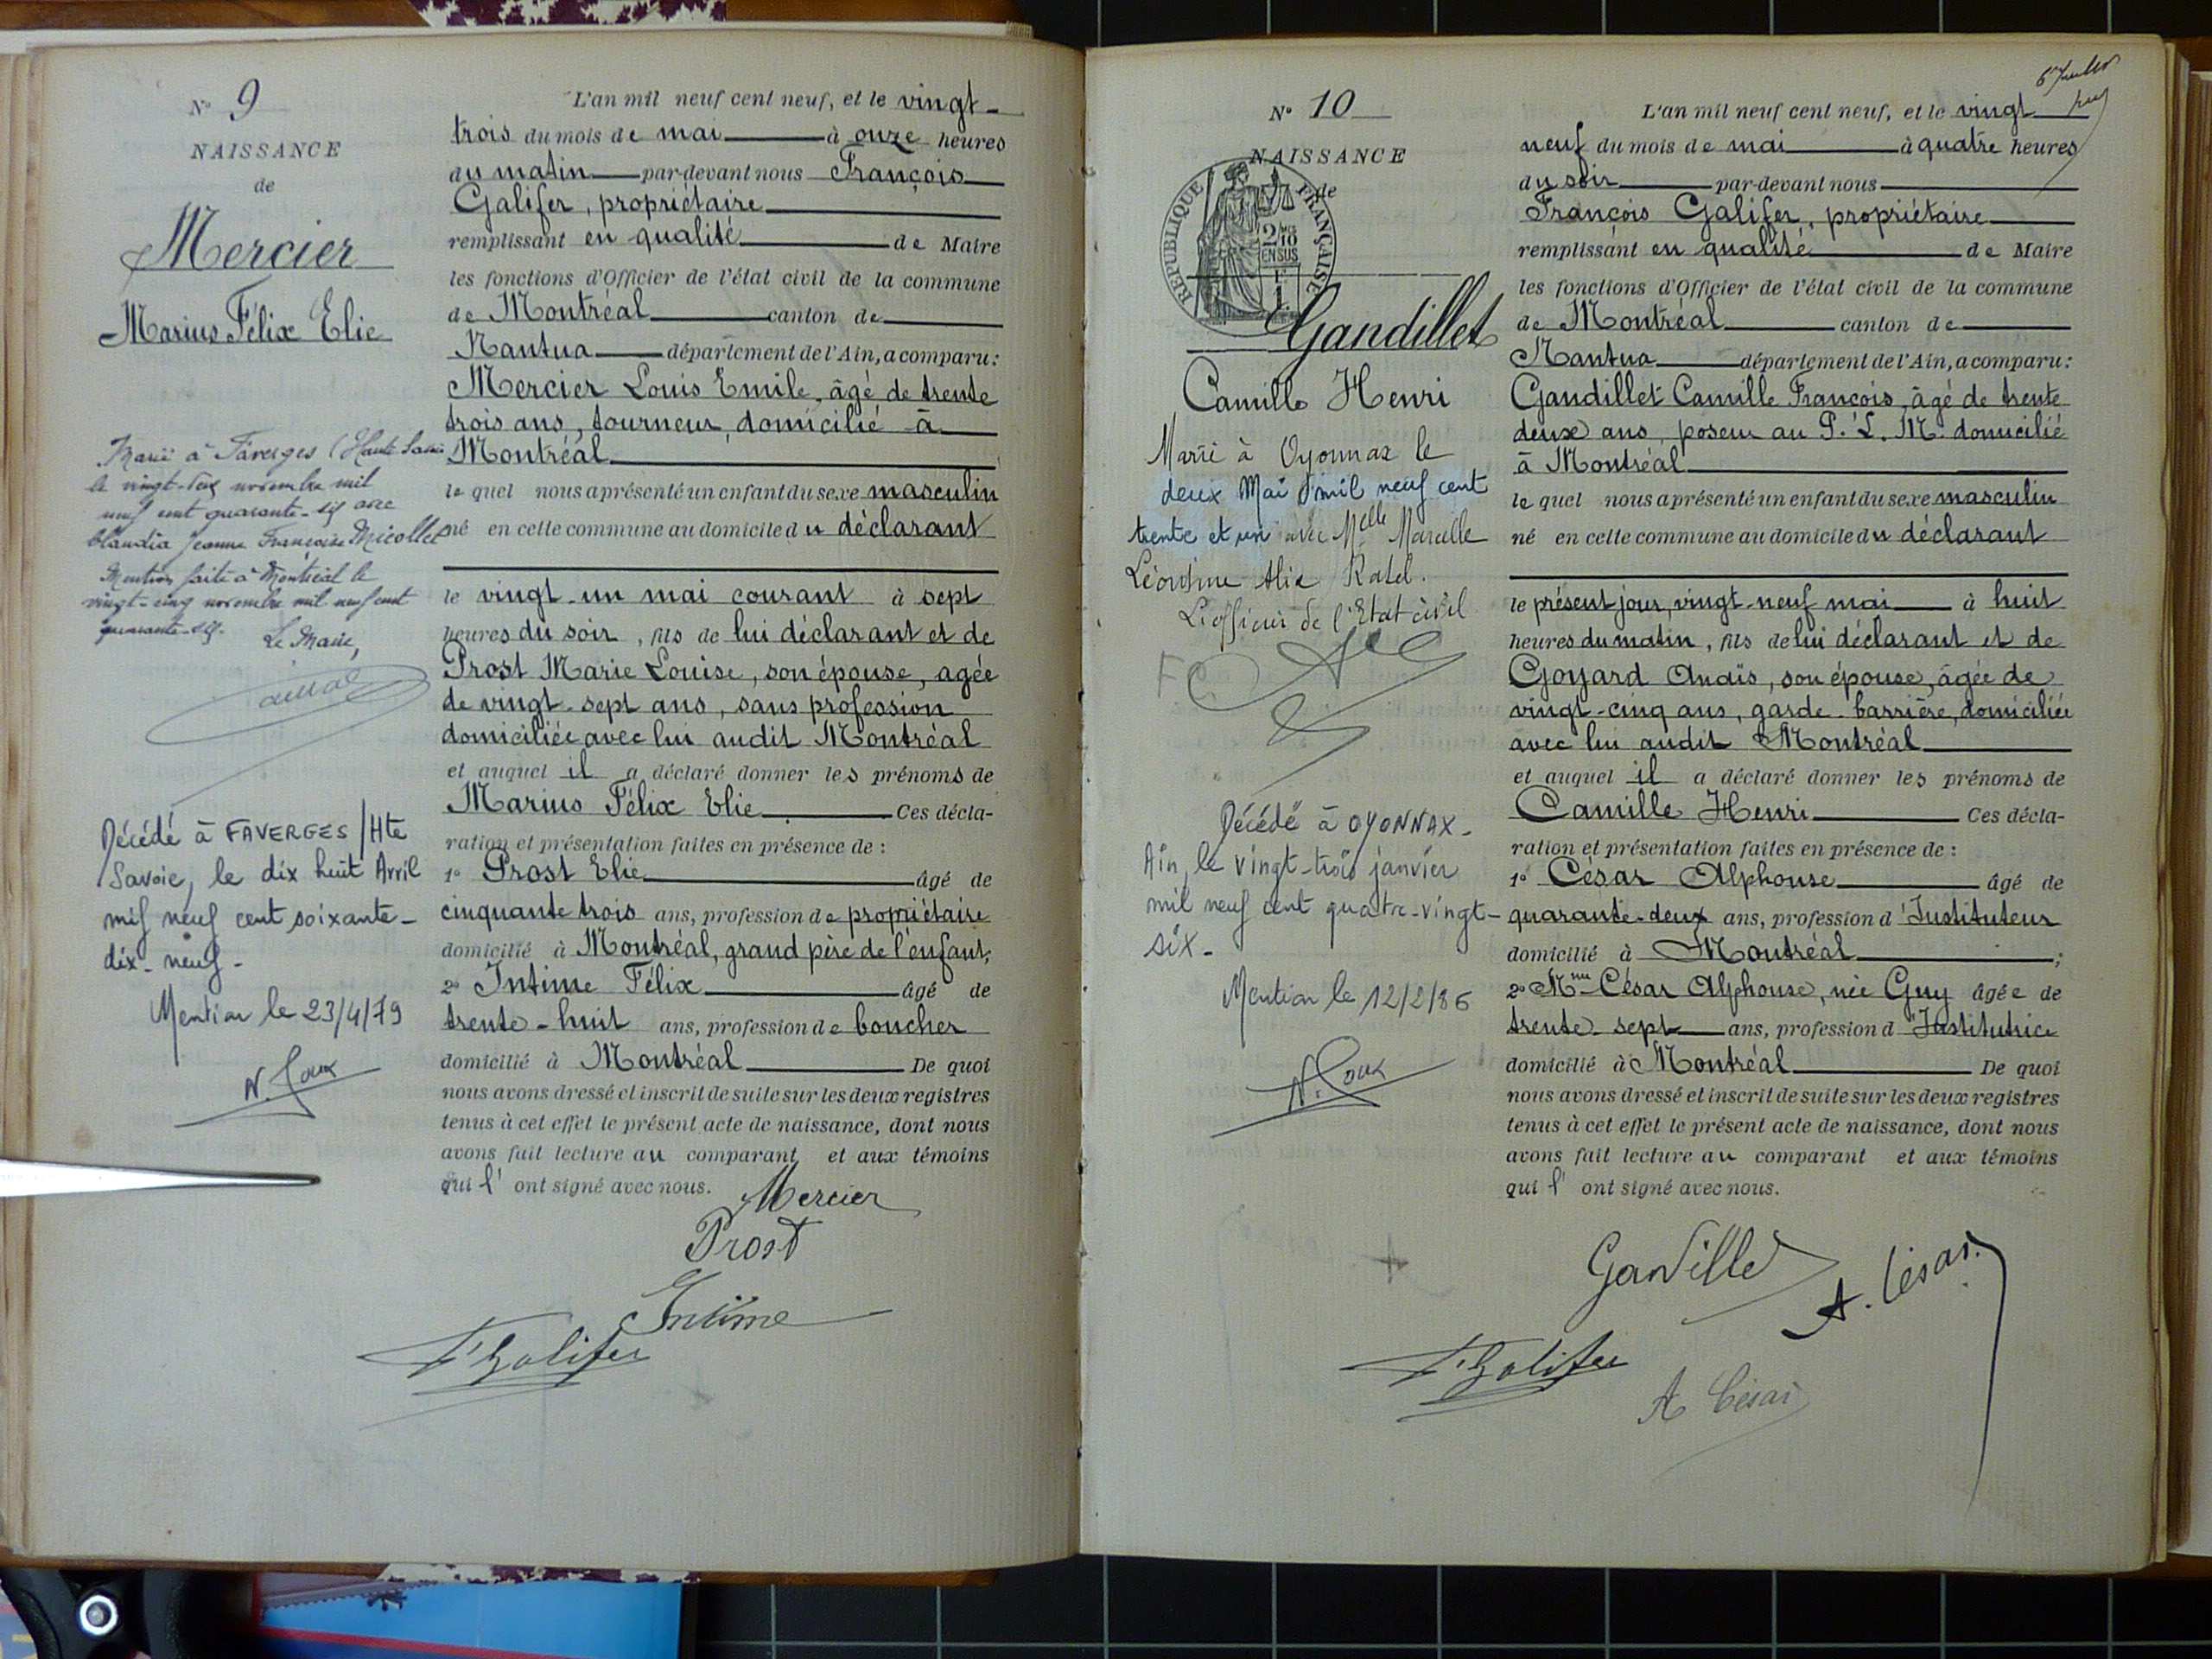 N° 9
NAISSANCE
de
Mercier
Marius Félix Elie
Marié à Faverges (Haute Savoie
le vingt-deux novembre mil
neuf cent quarante-six avec
Claudia Jeanne Françoise Micollet
Mention faite à Montréal le
vingt-cinq novembre mil neuf cent
quarante-six.
Le Maire,
Décédé à FAVERGES / Hte
Savoie, le dix huit Avril
mil neuf cent soixante-
dix-neuf-
Mention le 23/4/79
L'an mil neuf cent neuf, et le vingt-
trois du mois de mai à onze heures
du matin par-devant nous François
Galifer, propriétaire
remplissant en qualité de Maire
les fonctions d'Officier de l'état civil de la commune
de Montréal canton de
Nantua département de l'Ain, a comparu:
Mercier Louis Emile, âgé de trente
trois ans, tourneur, domicilié à
Montréal
le quel nous a présenté un enfant du sexe masculin
né en cette commune au domicile du déclarant
le vingt-un mai courant à sept
heures du soir, fils de lui déclarant et de
Prost Marie Louise, son épouse, agée
de vingt-sept ans, sans profession
domiciliée avec lui audit Montréal
et auquel il a déclaré donner les prénoms de
Marius Félix Elie Ces décla-
ration et présentation faites en présence de :
1° Prost Elie âgé de
cinquante trois ans, profession de propriétaire
domicilié à Montréal, grand père de l'enfant;
2° Intime Félix âgé de
trente-huit ans, profession de boucher
domicilié à Montréal De quoi
nous avons dressé et inscrit de suite sur les deux registres
tenus à cet effet le présent acte de naissance, dont nous
avons fait lecture au comparant et aux témoins
qui l' ont signé avec nous.
Mercier
Prost
Intime
F. Galifer
N° 10
NAISSANCE
de
RÉPUBLIQUE FRANÇAISE
2/10
EN SUS
Gandillet
Camille Henri
Marié à Oyonnax le
deux Mai mil neuf cent
trente et un avec Melle Marcelle
Léontine Alice Ratel.
L'officier de l'Etat civil
Décédé à OYONNAX-
Ain, le vingt-trois janvier
mil neuf cent quatre-vingt-
six-
Mention le 12/2/86
L'an mil neuf cent neuf, et le vingt
neuf du mois de mai à quatre heures
du soir par-devant nous
François Galifer, propriétaire
remplissant en qualité de Maire
les fonctions d'Officier de l'état civil de la commune
de Montréal canton de
Nantua département de l'Ain, a comparu:
Gandillet Camille François, âgé de trente
deux ans, poseur au P. L. M. domicilié
à Montréal
le quel nous a présenté un enfant du sexe masculin
né en cette commune au domicile du déclarant
le présent jour, vingt-neuf mai à huit
heures du matin, fils de lui déclarant et de
Goyard Anaïs, son épouse, âgée de
vingt-cinq ans, garde-barrière, domiciliée
avec lui audit Montréal
et auquel il a déclaré donner les prénoms de
Camille Henri Ces décla-
ration et présentation faites en présence de :
1° César Alphonse âgé de
quarante-deux ans, profession d'Instituteur
domicilié à Montréal ;
2° Mme César Alphonse, née Guy âgée de
trente-sept ans, profession d'Institutrice
domicilié à Montréal De quoi
nous avons dressé et inscrit de suite sur les deux registres
tenus à cet effet le présent acte de naissance, dont nous
avons fait lecture au comparant et aux témoins
qui l' ont signé avec nous.
Gandillet
A. César.
F. Galifer
A César